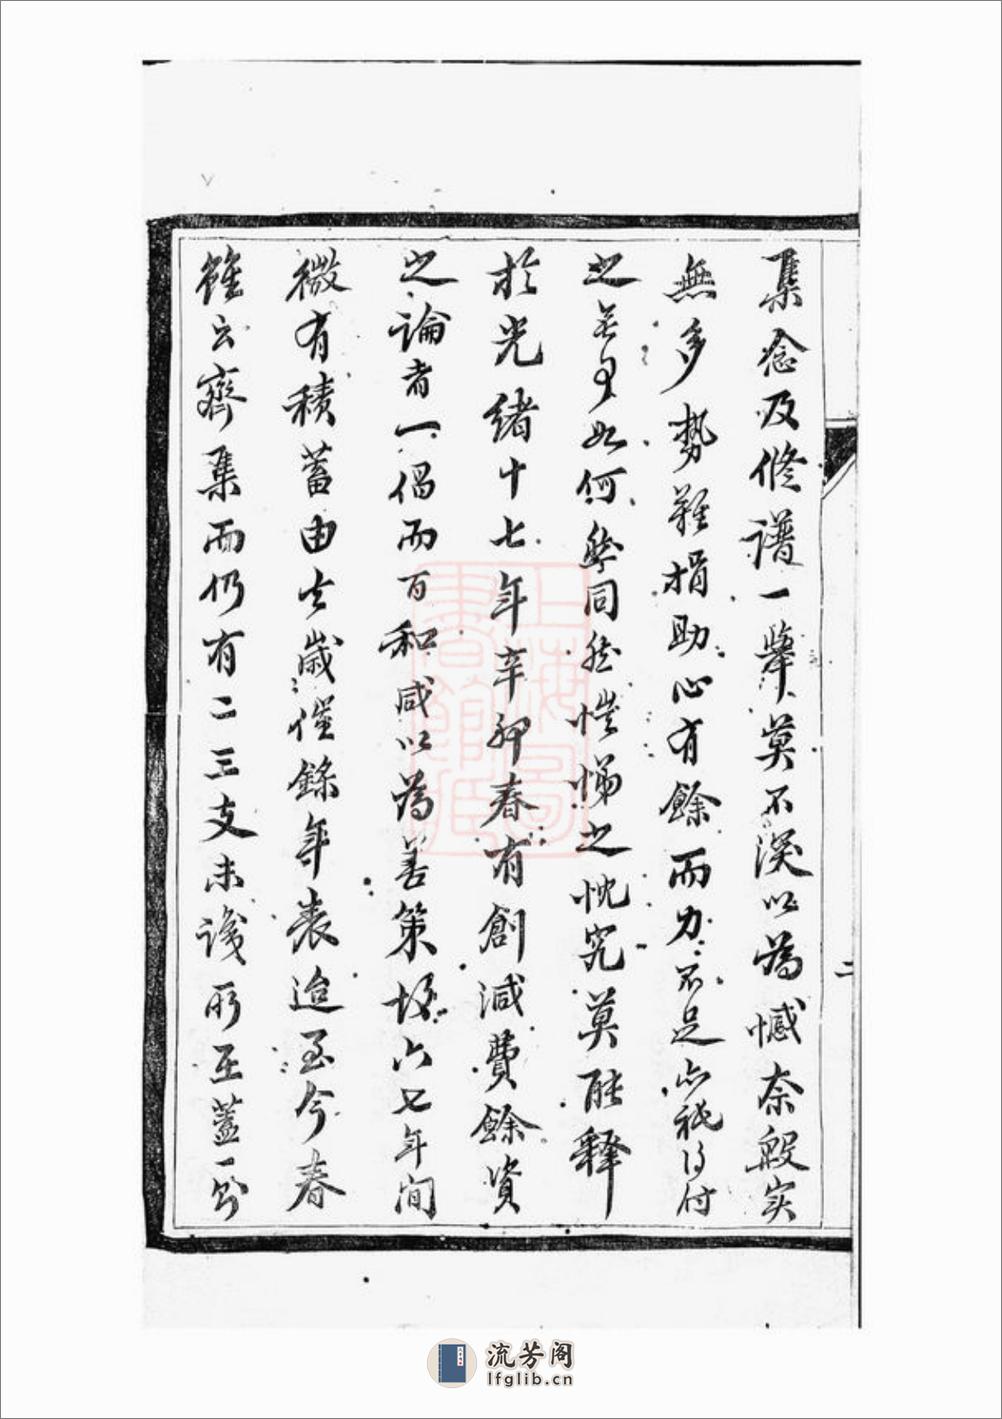 集念及修譜一舉莫不深以為憾奈殷实
無多勢難捐助心有餘而力不足亦祇得付
之無可如何然同然愷悌之忱究莫能釋
於光緒十七年辛卯春有創減費餘資
之論者一倡而百和咸以為善策故六七年間
微有積蓄由去歲催錄年表迨至今春
雖云齊集而仍有二三支未識所至蓋一
二
上海圖
書館藏
流芳阁
lfglib.cn